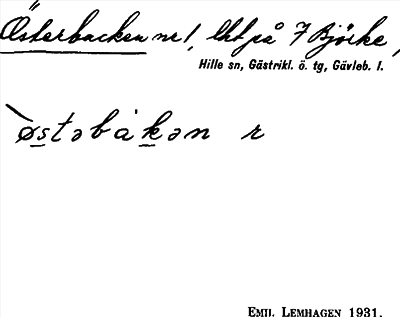 Österbacken nr 1, lht på 7 Björke,
Hille sn, Gästrikl. ö. tg, Gävleb. l.
`østəbàkən r
EMIL LEMHAGEN 1931.